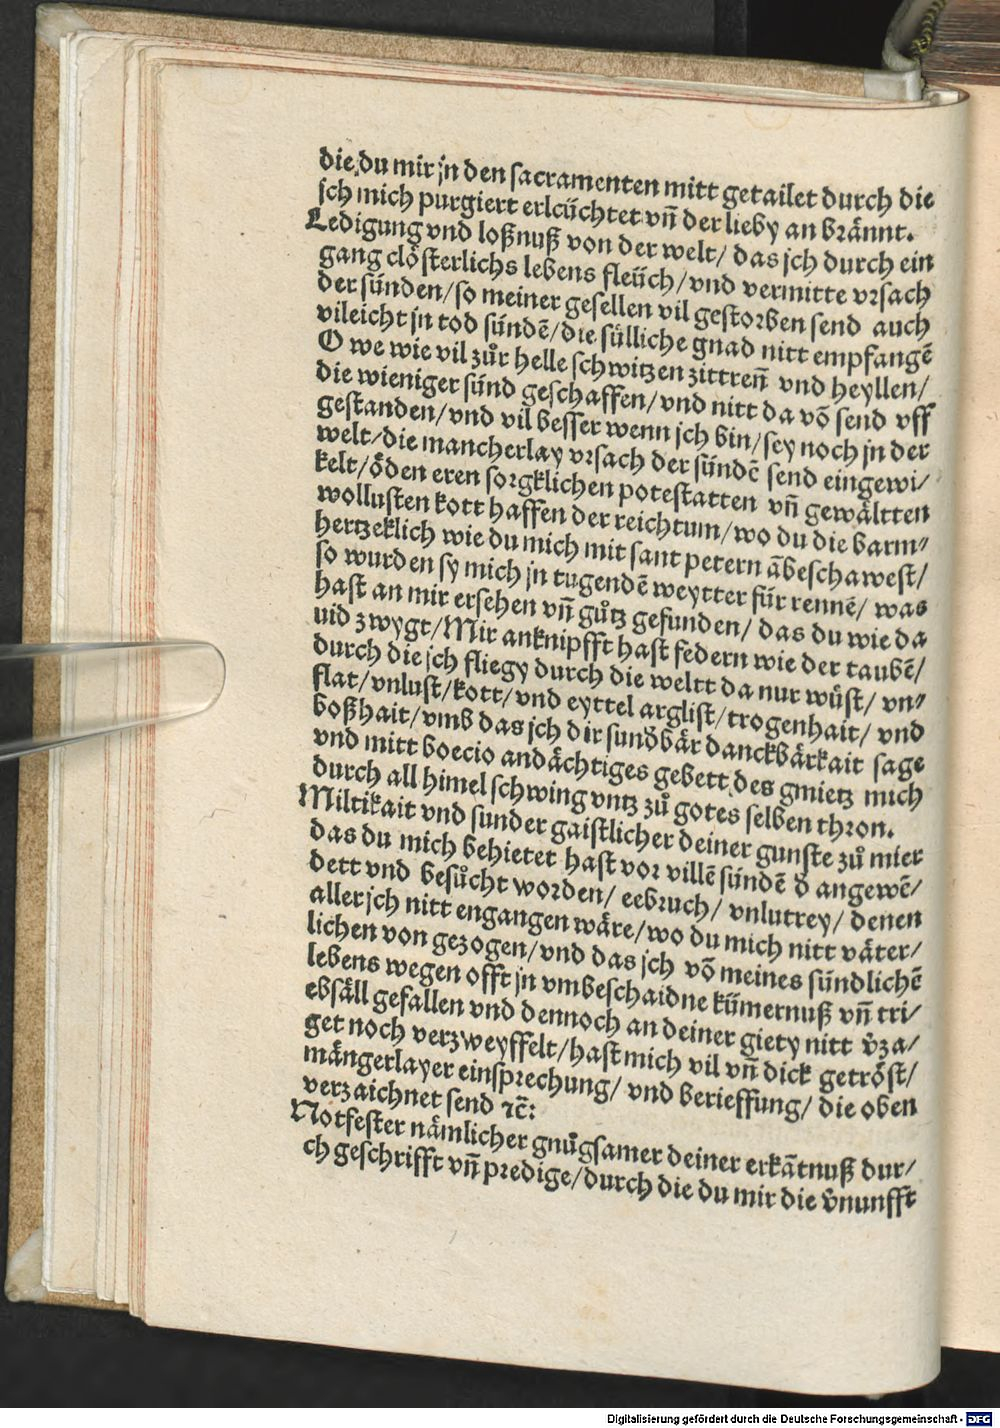 die du mir jn den sacramenten mitt getailet durch die
jch mich purgiert erleüchtet vn̄ der lieby an bꝛännt.
Ledigung vnd loßnuß von der welt/ das jch durch ein
gang clösterlichs lebens fleüch/vnd vermitte vꝛsach
der sünden/so meiner gesellen vil gestorben send auch
vileicht jn tod sündē/die sülliche gnad nitt empfangē
O we wie vil zůr helle schwitzen zittren̄ vnd heyllen/
die wieniger sünd geschaffen/vnd nitt da vō send vff
gestanden/vnd vil besser wenn jch bin/sey noch jn der
welt/die mancherlay vꝛsach der sündē send eingewi/
kelt/öden eren soꝛgklichen potestatten vn̄ gewältten
wollusten kott haffen der reichtum/wo du die barm⸗
hertzeklich wie du mich mit sant petern ābeschawest/
so wurden sy mich jn tugendē weytter für rennē/ was
hast an mir ersehen vn̄ gůtz gefunden/ das du wie da
uid zwygt/Mir anknipfft hast federn wie der taubē/
durch die jch fliegy durch die weltt da nur wüst/ vn⸗
flat/vnlust/kott/vnd eyttel arglist/trogenhait/ vnd
boßhait/vmb das jch dir sunđbär danckbärkait sage
vnd mitt boecio andächtiges gebett des gmietz mich
durch all himel schwing vntz zů gotes selben thꝛon.
Miltikait vnd sunder gaistlicher deiner gunste zů mier
das du mich behietet hast voꝛ villē sündē đ angewē/
dett vnd besůcht woꝛden/ eebꝛuch/ vnlutrey/ denen
aller jch nitt engangen wäre/wo du mich nitt väter/
lichen von gezogen/vnd das jch vō meines sündlichē
lebens wegen offt jn vmbeschaidne kümernuß vn̄ tri/
ebsäll gefallen vnd dennoch an deiner giety nitt v̄za/
get noch verzweyffelt/hast mich vil vn̄ dick getröst/
mängerlayer einspꝛechung/ vnd berieffung/ die oben
verzaichnet send ⁊c̄:
Notfester nämlicher gnůgsamer deiner erkātnuß dur/
ch geschrifft vn̄ pꝛedige/durch die du mir die v̄nunfft
Digitalisierung gefördert durch die Deutsche Forschungsgemeinschaft - DFG